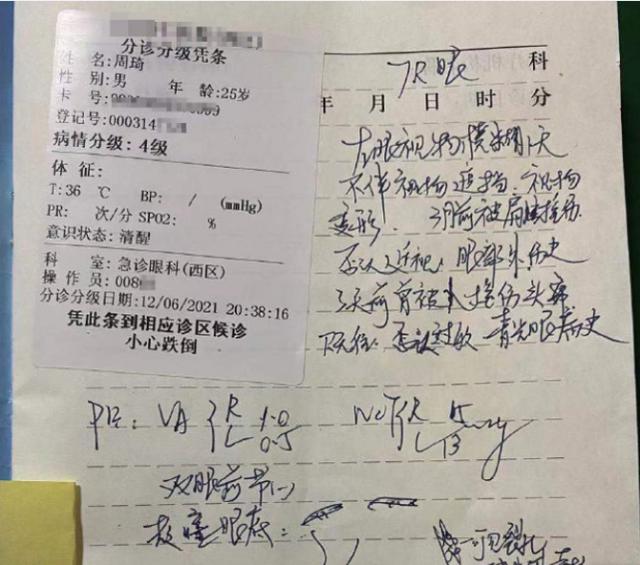 分诊分级凭条
姓 名:周琦
性 别:男 年 龄:25岁
卡 号:
登记号:000314
病情分级: 4级
体 征:
T:36 ℃ BP: / (mmHg)
PR: 次/分 SPO2: %
意识状态: 清醒
科 室:急诊眼科(西区)
操 作 员: 008
分诊分级日期:12/06/2021 20:38:16
凭此条到相应诊区候诊
小心跌倒
眼 科
年 月 日 时 分
左眼视物模糊1天
不伴视物遮挡、视物
变形. 3月前被肩膀撞伤
否认近视、眼部外伤史
3天前曾被人撞伤头部
既往: 否认过敏 青光眼病史
VA R 1.0
L 0.5
NCT R 15 mmHg
L 13
双眼前节(-)
散瞳眼底:
可见裂孔